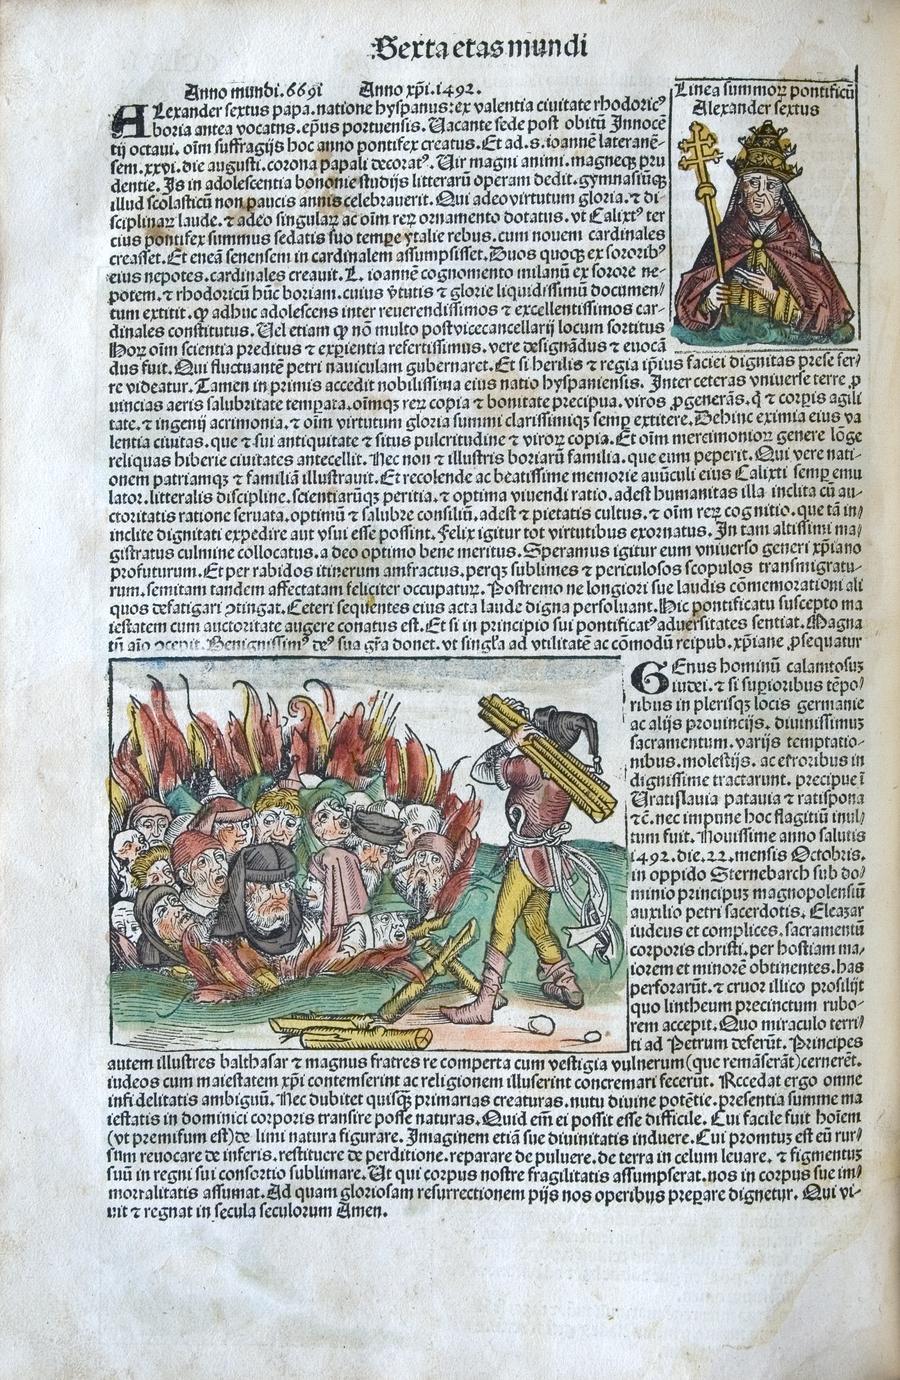 Sexta etas mundi
Anno mundi.6691 Anno xp̄i.1492.
Linea summoꝝ pontificū
Alexander sextus
ALexander sextus papa.natione hyspanus:ex valentia ciuitate rhodoricꝰ
boria antea vocatus.ep̄us portuensis. Uacante sede post obitū Innocē
tij octaui. oīm suffragijs hoc anno pontifex creatus. Et ad.s.ioannē lateranē-
sem.xxvi.die augusti.corona papali decoratꝰ. Uir magni animi.magneqꝫ pru
dentie. Is in adolescentia bononie studijs litterarū operam dedit.gymnasiūqꝫ
illud scolasticū non paucis annis celebrauerit. Qui adeo virtutum gloria. ⁊ di-
sciplinaꝝ laude. ⁊ adeo singulaꝝ ac oīm reꝝ ornamento dotatus. vt Calixtꝰ ter
cius pontifex summus sedatis suo tempe ytalie rebus.cum nouem cardinales
creasset. Et eneā senensem in cardinalem assumpsisset. Duos quoqꝫ ex sororibꝰ
eius nepotes.cardinales creauit. L. ioannē cognomento milanū ex sorore ne-
potem. ⁊ rhodoricū hūc boriam.cuius v̄tutis ⁊ glorie liquidissimū documen-
tum extitit. ꝙ adhuc adolescens inter reuerendissimos ⁊ excellentissimos car-
dinales constitutus. Uel etiam ꝙ nō multo post vicecancellarij locum sortitus
Hoꝝ oīm scientia preditus ⁊ exꝑientia refertissimus. vere designādus ⁊ euocā
dus fuit. Qui fluctuantē petri nauiculam gubernaret. Et si herilis ⁊ regia ip̄ius faciei dignitas prese fer-
re videatur. Tamen in primis accedit nobilissima eius natio hyspaniensis. Inter ceteras vniuerse terre ꝓ
uincias aeris salubritate temꝑata.oīmqꝫ reꝝ copia ⁊ bonitate precipua. viros ꝓgenerās. q̄ ⁊ corꝑis agili
tate. ⁊ ingenij acrimonia. ⁊ oīm virtutum gloria summi clarissimiqꝫ semꝑ extitere. Dehinc eximia eius va
lentia ciuitas. que ⁊ sui antiquitate ⁊ situs pulcritudine ⁊ viroꝝ copia. Et oīm mercimonioꝝ genere lōge
reliquas hiberie ciuitates antecellit. Nec non ⁊ illustris boriarū familia. que eum peperit. Qui vere nati-
onem patriamqꝫ ⁊ familiā illustrauit. Et recolende ac beatissime memorie auūculi eius Calixti semꝑ emu
lator. litteralis discipline.scientiarūqꝫ peritia. ⁊ optima viuendi ratio. adest humanitas illa inclita cū au-
ctoritatis ratione seruata. optimū ⁊ salubre consiliū. adest ⁊ pietatis cultus. ⁊ oīm reꝝ cognitio. que tā in
inclite dignitati expedire aut vsui esse possint. Felix igitur tot virtutibus exornatus. In tam altissimi ma-
gistratus culmine collocatus. a deo optimo bene meritus. Speramus igitur eum vniuerso generi xp̄iano
profuturum. Et per rabidos itinerum amfractus. perqꝫ sublimes ⁊ periculosos scopulos transmigratu-
rum. semitam tandem affectatam feliciter occupaturꝫ. Postremo ne longiori sue laudis cōmemorationi ali
quos defatigari ↄtingat. Ceteri sequentes eius acta laude digna persoluant. Hic pontificatu suscepto ma
iestatem cum auctoritate augere conatus est. Et si in principio sui pontificatꝰ aduersitates sentiat. Magna
tū aīo ↄcepit. Benignissimꝰ deꝰ sua gr̄a donet. vt singl̄a ad vtilitatē ac cōmodū reipub. xp̄iane ꝓsequatur
GEnus hominū calamitosuꝫ
iudei. ⁊ si suꝑioribus tēpo-
ribus in plerisqꝫ locis germanie
ac alijs prouincijs. diuinissimuꝫ
sacramentum. varijs temptatio-
nibus. molestijs. ac etroribus in
dignissime tractarunt. precipue ī
Uratislauia patauia ⁊ ratispona
⁊c̄. nec impune hoc flagitiū inul-
tum fuit. Nouissime anno salutis
1492. die. 22. mensis Octobris.
in oppido Sternebarch sub do-
minio principuꝫ magnopolensiū
auxilio petri sacerdotis. Eleazar
iudeus et complices. sacramentū
corporis christi. per hostiam ma-
iorem et minorē obtinentes. has
perforarūt. ⁊ cruor illico prosilijt
quo lintheum precinctum rubo-
rem accepit. Quo miraculo terri-
ti ad Petrum deferūt. Principes
autem illustres balthasar ⁊ magnus fratres re comperta cum vestigia vulnerum (que remāserāt) cernerēt.
iudeos cum maiestatem xp̄i contemserint ac religionem illuserint concremari fecerūt. Rccedat ergo omne
infidelitatis ambiguū. Nec dubitet quisqꝫ primarias creaturas. nutu diuine potētie. presentia summe ma
iestatis in dominici corporis transire posse naturas. Quid em̄ ei possit esse difficile. Cui facile fuit hoīem
(vt premisum est) de limi natura figurare. Imaginem etiā sue diuinitatis induere. Cui promtuꝫ est eū rur-
sum reuocare de inferis. restitucre de perditione. reparare de puluere. de terra in celum leuare. ⁊ figmentuꝫ
suū in regni sui consortio sublimare. Ut qui corpus nostre fragilitatis assumpserat. nos in corpus sue im-
mortalitatis assumat. Ad quam gloriosam resurrectionem pijs nos operibus preꝑare dignetur. Qui vi-
uit ⁊ regnat in secula seculorum Amen.